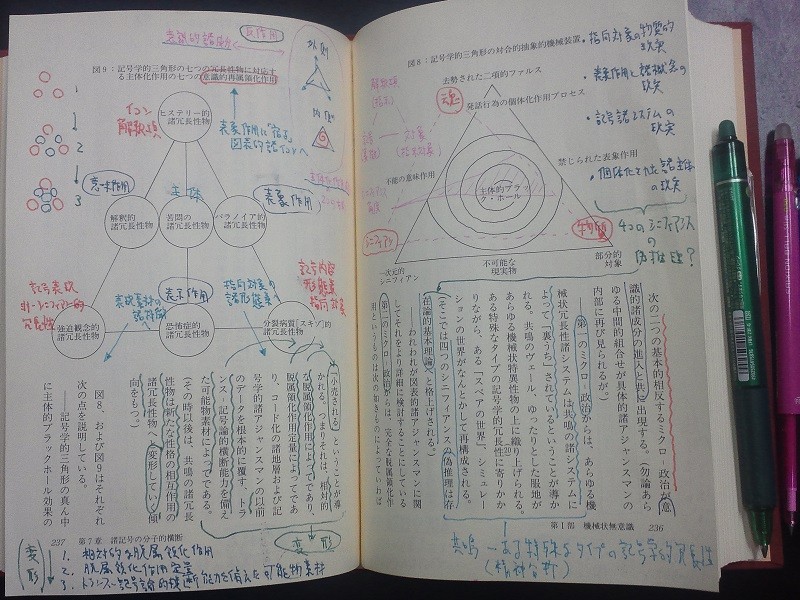 図8：記号学的三角形の対合的抽象的機械装置
去勢された二項的ファルス
発話行為の個体化作用プロセス
禁じられた表象作用
不能の意味作用
主体的ブラッ
ク・ホール
一次元的
シニフィアン
不可能な
現実物
部分的
対象
魂
物質
シニフィアン
・指向対象の物質的
現実
・表象作用と諸概念の
現実
・記号諸システムの
現実
・個体化された諸主体
の現実
4つのシニフィアンス
の
偽推理?
次の二つの基本的相反するミクロ-政治が意
識的諸成分の進入と共に出現する。（勿論あら
ゆる中間的組合せが具体的諸アジャンスマンの
内部に再び見られるが。）
――第一のミクロ-政治からは、あらゆる機
械状冗長性諸システムは共鳴の諸システムに
よって「裏うち」されているということが導か
れる。共鳴のヴェール、ゆったりとした服地が
あらゆる機械状特異性物の上に織り上げられる。
ある特殊なタイプの記号学的冗長性に寄りかか
りながら、ある「スペアの世界」、シミュレー
ションの世界がなんとかして再構成される。
（そこでは四つのシニフィアンスの偽推理は存
在論的基本理論へと格上げされる）。
――われわれが図表的諸アジャンスマンに関
してそれをより詳細に検討することにしている
第二のミクロ-政治からは、完全な脱属領化作
用というものは次の如きものによっていわば
第1部 機械状無意識
236
共鳴―ある特殊なタイプの記号学的冗長性
(精神分析)
図9：記号学的三角形の七つの冗長性物に対応す
る主体化作用の七つの意識的再属領化作用
ヒステリー的
諸冗長性物
解釈的
諸冗長性物
苦悶の
諸冗長性物
パラノイア的
諸冗長性物
強迫観念的
諸冗長性物
恐怖症的
諸冗長性物
分裂病質〔スキゾ〕的
諸冗長性物
イコン
解釈項
意味作用
主体
表象作用
表示作用
表象作用に「宿る」
図表的諸イコンへ
記号内容
指向対象
1
2
3
「小売される」ということが導
かれる。つまりそれは、相対的
な脱属領化作用によってであり、
脱属領化作用定量によってであ
り、コード化の諸地層および記
号学的諸アジャンスマンの以前
のデータを根本的に覆す、トラ
ンス-記号論的横断能力を備え
た可能物素材によってである。
（その時以後は、共鳴の諸冗長
性物は新たな性格の相互作用の
諸冗長性物へと変形していく傾
向をもつ。）
図8、および図9はそれぞれ
次の点を説明している。
――記号学的三角形の真ん中
に主体的ブラックホール効果の
237
第7章 諸記号の分子的横断
変形
変形
1. 相対的な脱属領化作用
2. 脱属領化作用定量
3. トランス-記号論的横断能力を備えた可能物素材